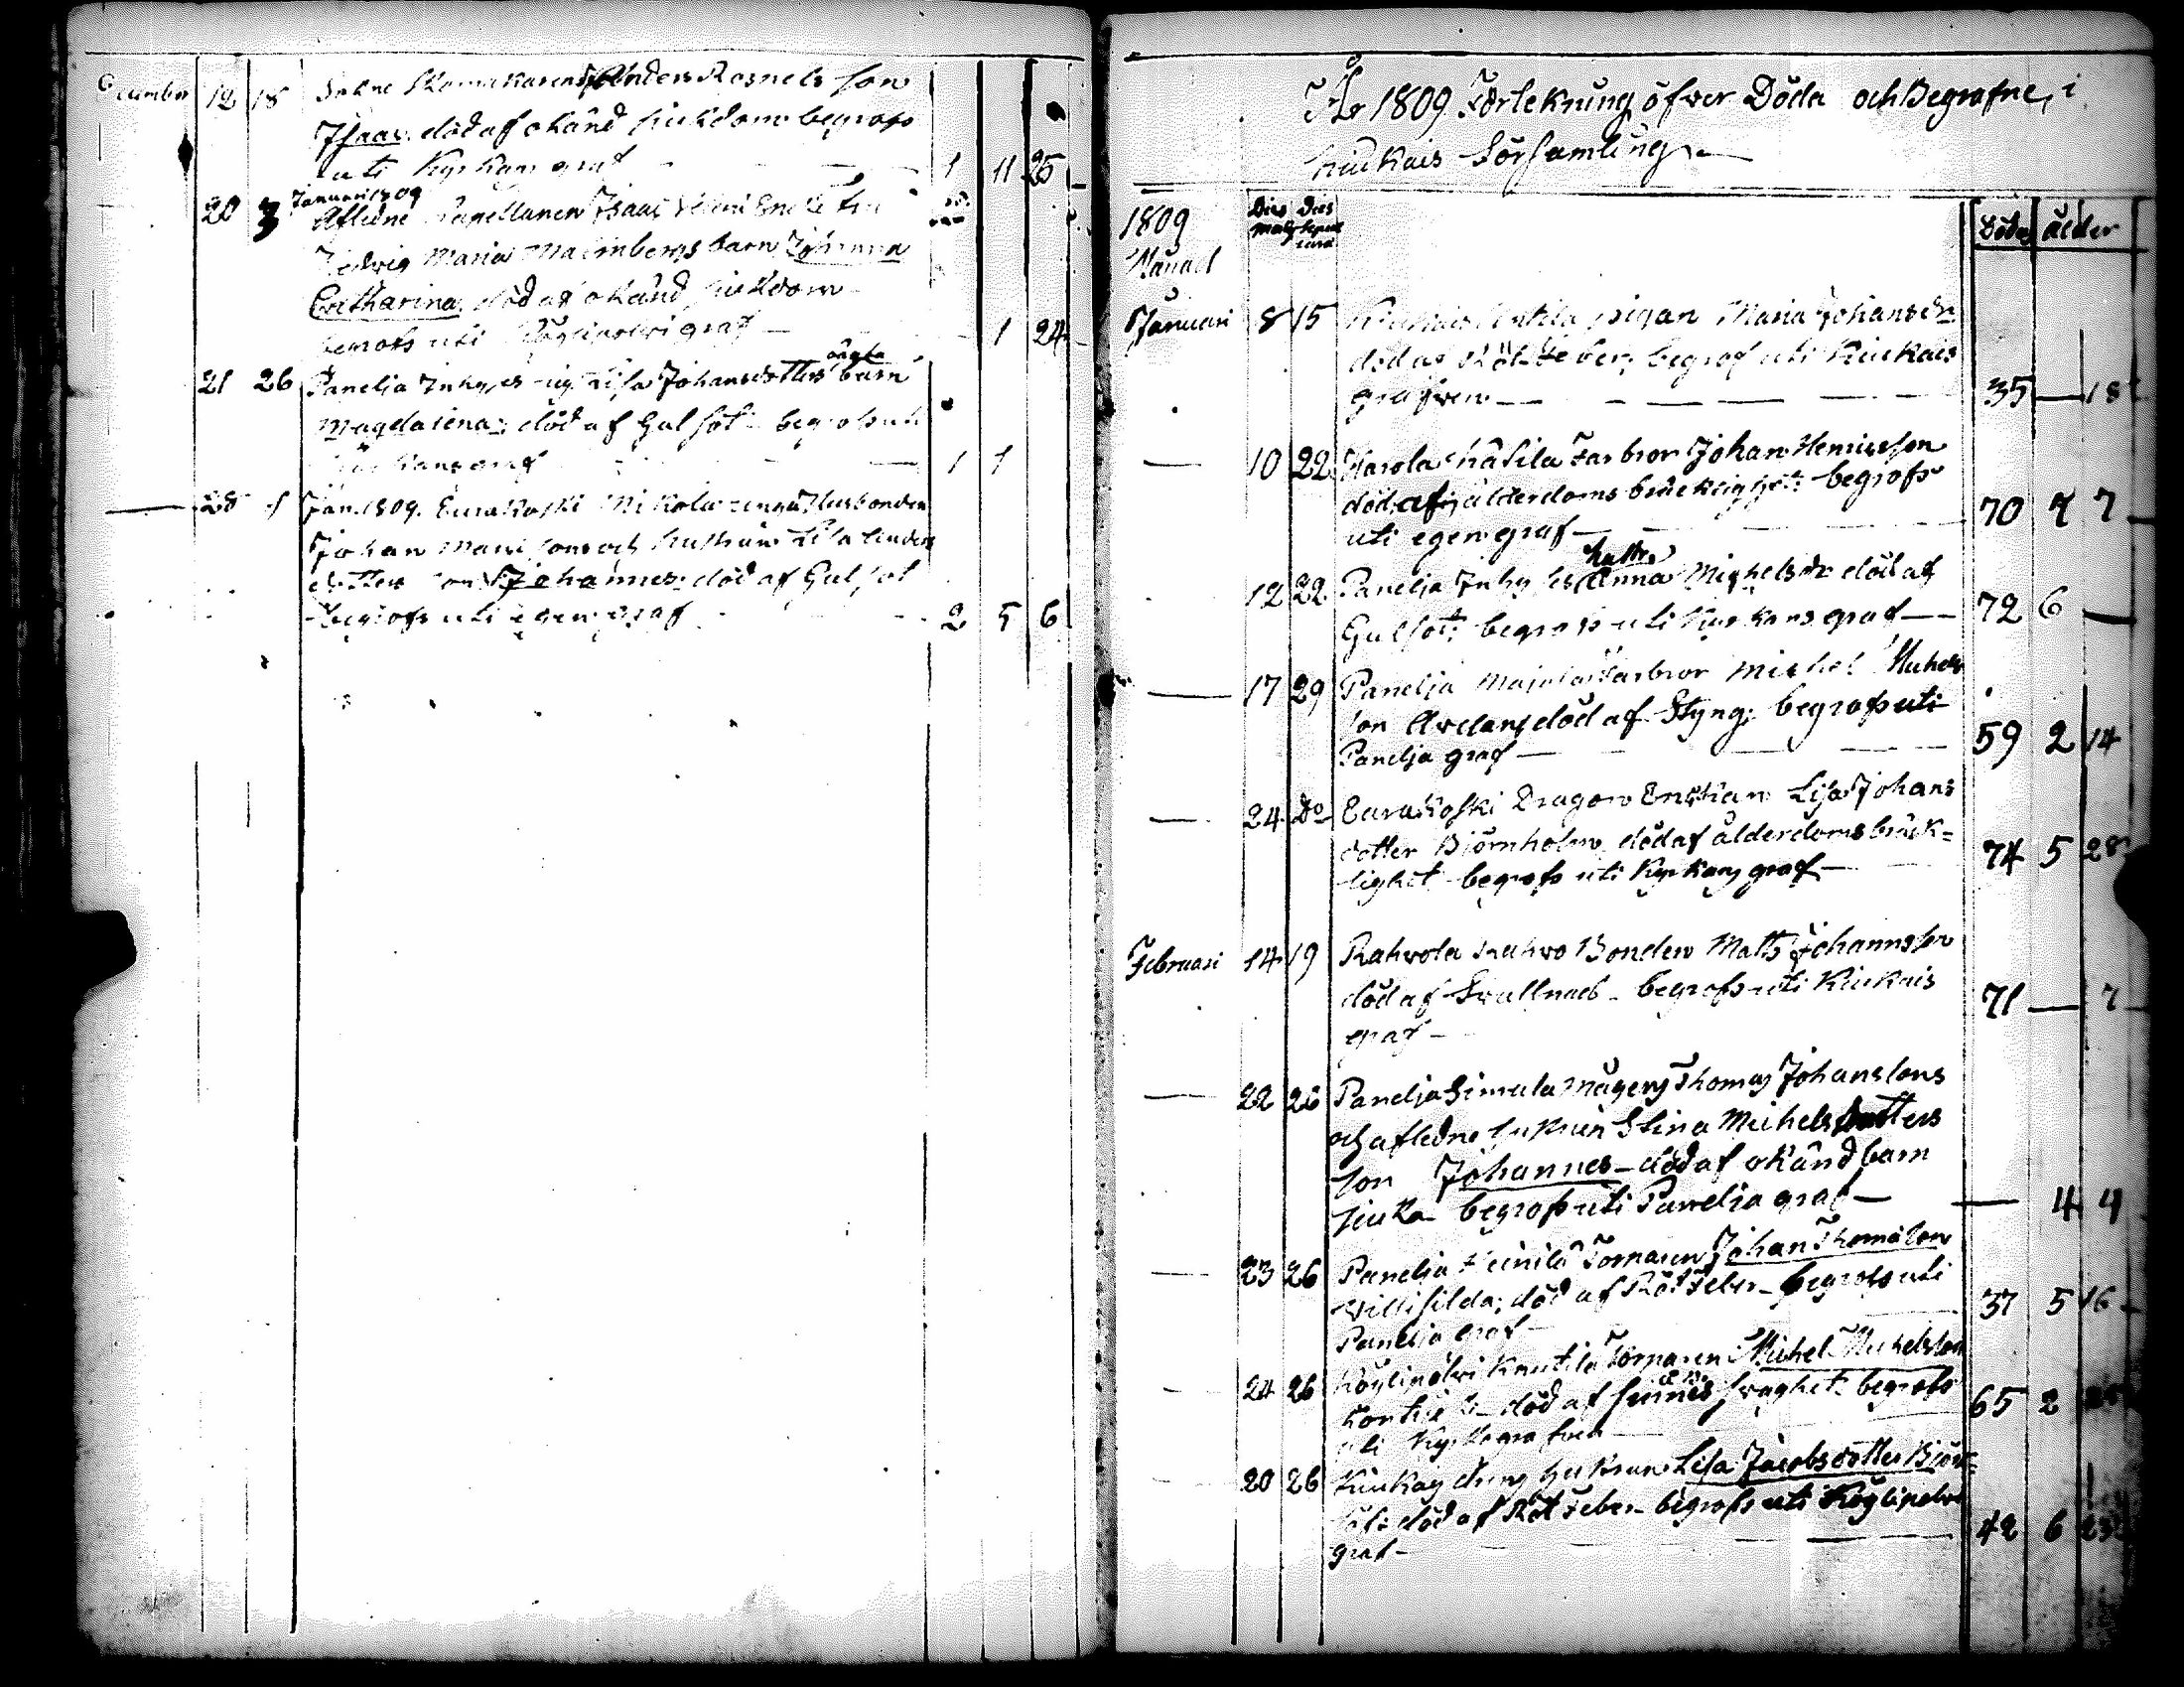 December 12 18 Sokne Skomakarens Anders Rosnels son
Isaac. död af okänd siukdom begrofs
uti Kyrkans graf 1 11 25
Januari 1809
20 3 Afledne Capellanen Isaac Enke Fru
Hedvig Maria Malmbergs barn Johanna
Catharina, död af okänd siukdom
begrofs uti Köylipolvi graf — 1 24
oägta
21 26 Panelia Inhyses Lisa Johansdotters barn
Magdalena; död af Gulsot begrofs uti
Kyrkans graf — 1 1
28 1 Jan. 1809. Eurakoski Mikola unga Husbonden
Johan Mattssons och hustruns Lisa
dotters son Johannes. död af Gulsot
begrofs uti egen graf 2 5 6
År 1809 Förtekning öfver Döda och Begrafne, i
Kiukais Församling
1809
Månad
Dies Dies
Döda ålder
Januari 8 15 Kiukais pigan Maria Johansdr
död af Röt Feber, begrof uti Kiukais
grafven — 35 — 18
— 10 22 Harola Farbror Johan Henricsson
död af ålderdoms bräcklighet begrofs
uti egen graf — 70 4 7
hustr
12 22 Panelja Inhyses Anna Michelsdr död af
Gulsot; begrofs uti Kyrkans graf — 72 6 —
— 17 29 Panelja Majala Farbror Michel Michels
son död af Styng; begrofs uti
Panelja graf — 59 2 14
— 24 do Eurakoski Dragon Enkan Lisa Johans
dotter Björnholm död af ålderdoms bräck=
lighet begrofs uti Kyrkans graf — 74 5 28
Februari 14 19 Rahvola Rahvo Bonden Matts Johansson
död af Svullnad begrofs uti Kiukais
graf — 71 — 7
— 22 26 Panelja Simula Mågens Thomas Johanssons
och afledne hustrun Stina Michelsdotters
son Johannes — död af okänd barn
siuka begrofs uti Panelja graf — — 4 4
— 23 26 Panelja Torparen Johan Thomasson
död af Röt Feber — begrofs uti
Panelja graf — 37 5 16
— 24 26 Köylipolvi Knutila Torparen Michel Michelsson
död af svaghet begrofs
uti Kyrkografven 65 2
20 26 hustrun Lisa Jacobsdotter
död af Röt Feber — begrofs uti Köylipolvi
graf — 42 6 23